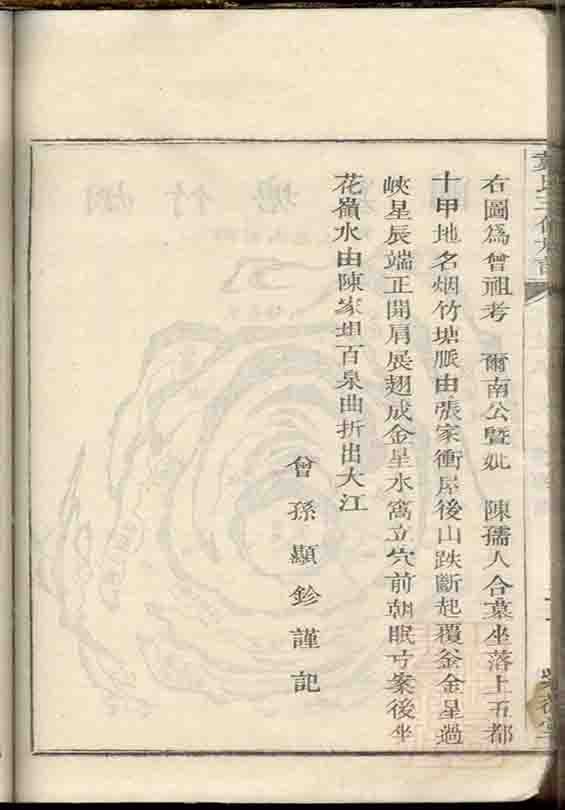 右圖為曾祖考　爾南公暨妣　陳孺人合塟坐落上五都
十甲地名烟竹塘脈由張家衝屋後山跌斷起覆釜金星過
峽星辰端正開肩展翅成金星水窩立穴前朝眠弓案後坐
花嶺水由陳家垻百泉曲折出大江
曾孫顯鉁謹記